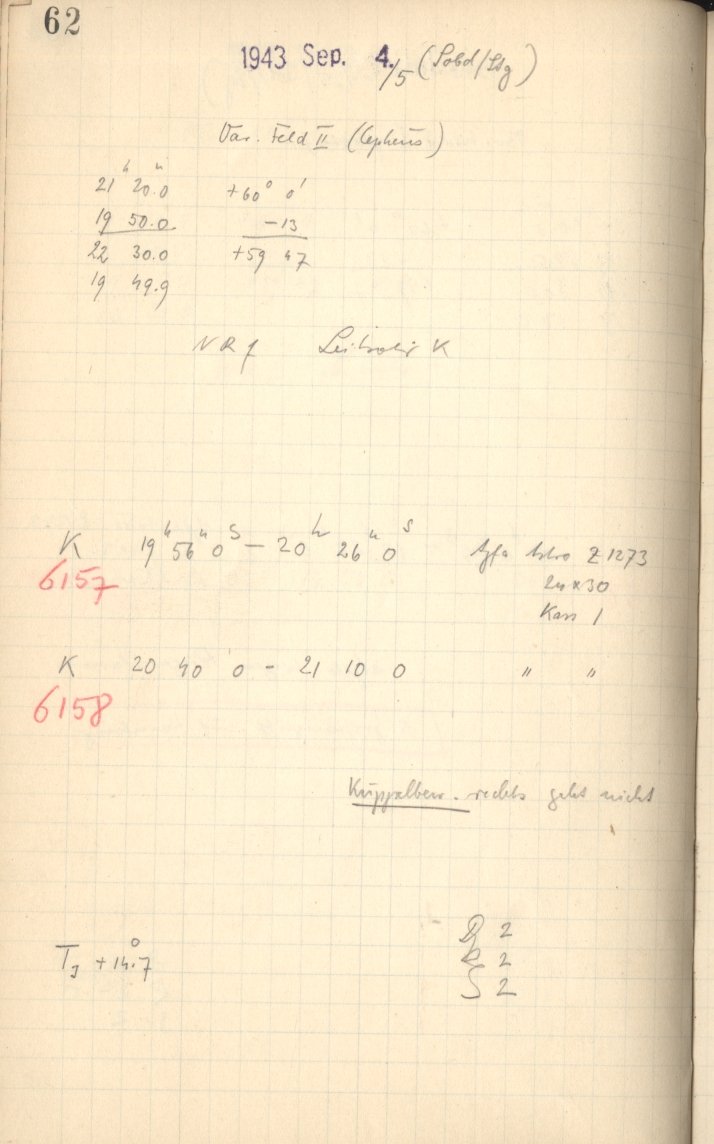 62
1943 Sep. 4./5 (Sobd/Stg)
Var. Feld II (Cepheus)
21ʰ 20.0 +60° 0'
19 50.0 -13
22 30.0 +59 47
19 49.9
K 19ʰ 56ᵐ 0ˢ - 20ʰ 26ᵐ 0ˢ Agfa Astro Z 1273
6157 24x30
Kass 1
K 20 40 0 - 21 10 0 " "
6158
Kuppelbew. rechts geht nicht
2
T₃ +14.°7 R 2
S 2